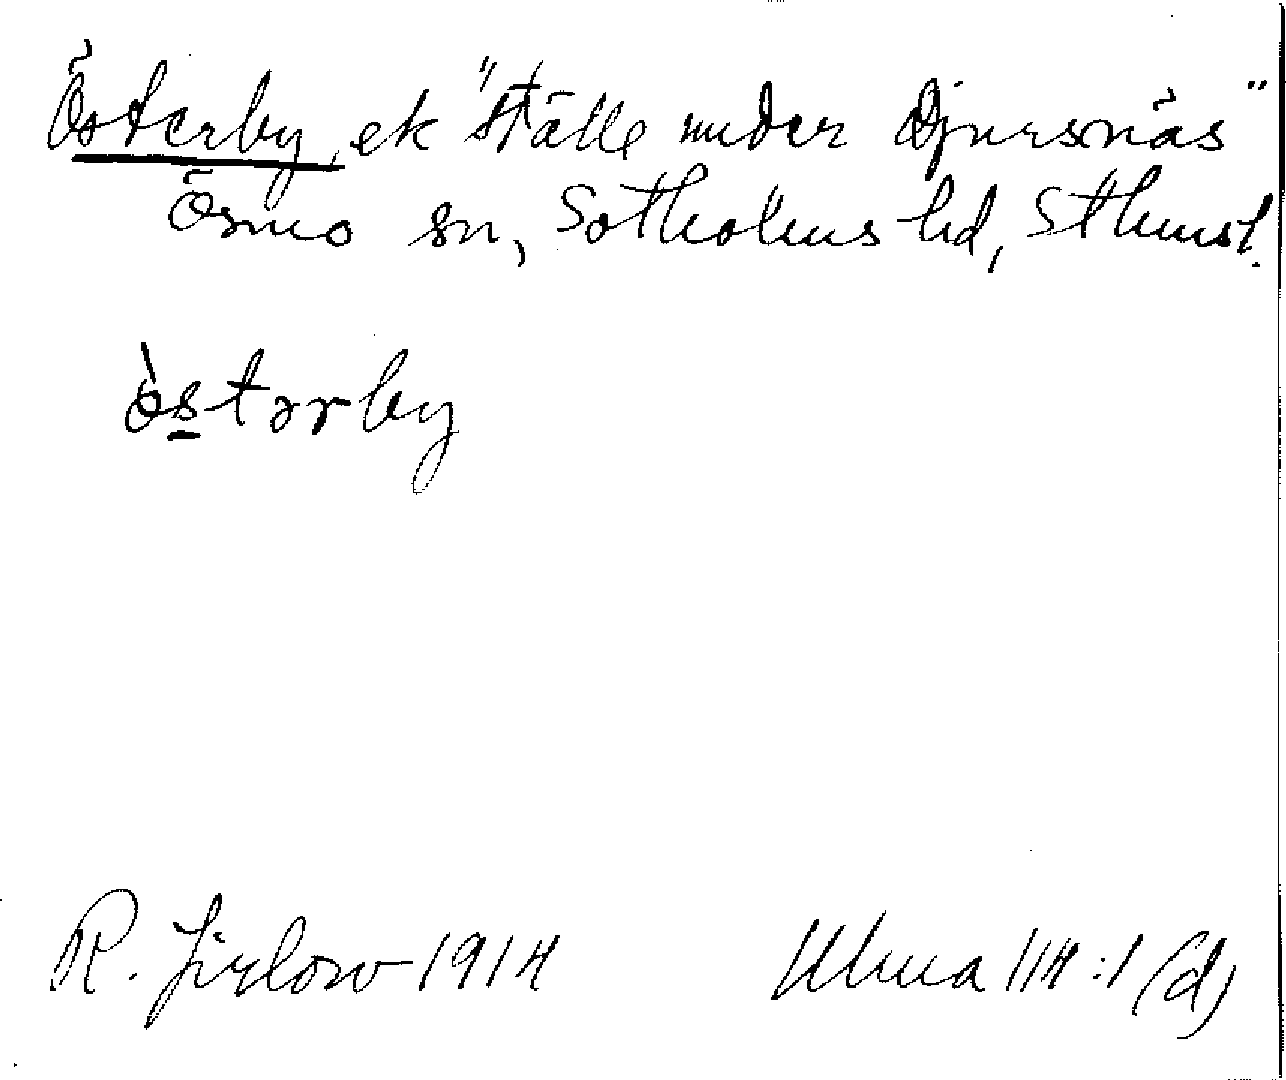 Österby, ek "ställe under Djursnäs"
Ösmo sn, Sotholms hd, Sthmsl.
òstərby
R. Jirlow 1914
Ulma 114:1 (d)